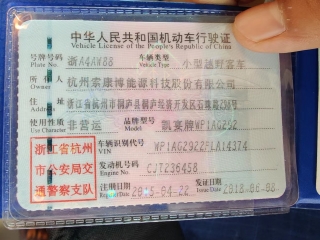 中华人民共和国机动车行驶证
Vehicle License of the People's Republic of China
号牌号码 浙A4AW88 车辆类型 小型越野客车
Plate No. Vehicle Type
所有人 杭州索康博能源科技股份有限公司
Owner
住址 浙江省杭州市桐庐县桐庐经济开发区石珠路
Address
使用性质 非营运 品牌型号 凯宴牌WP1AG292
Use Character Model
浙江省杭州市公安局交通警察支队
车辆识别代号
VIN
发动机号码 CJT236458
Engine No.
注册日期 发证日期 2018-06-08
Register Date Issue Date